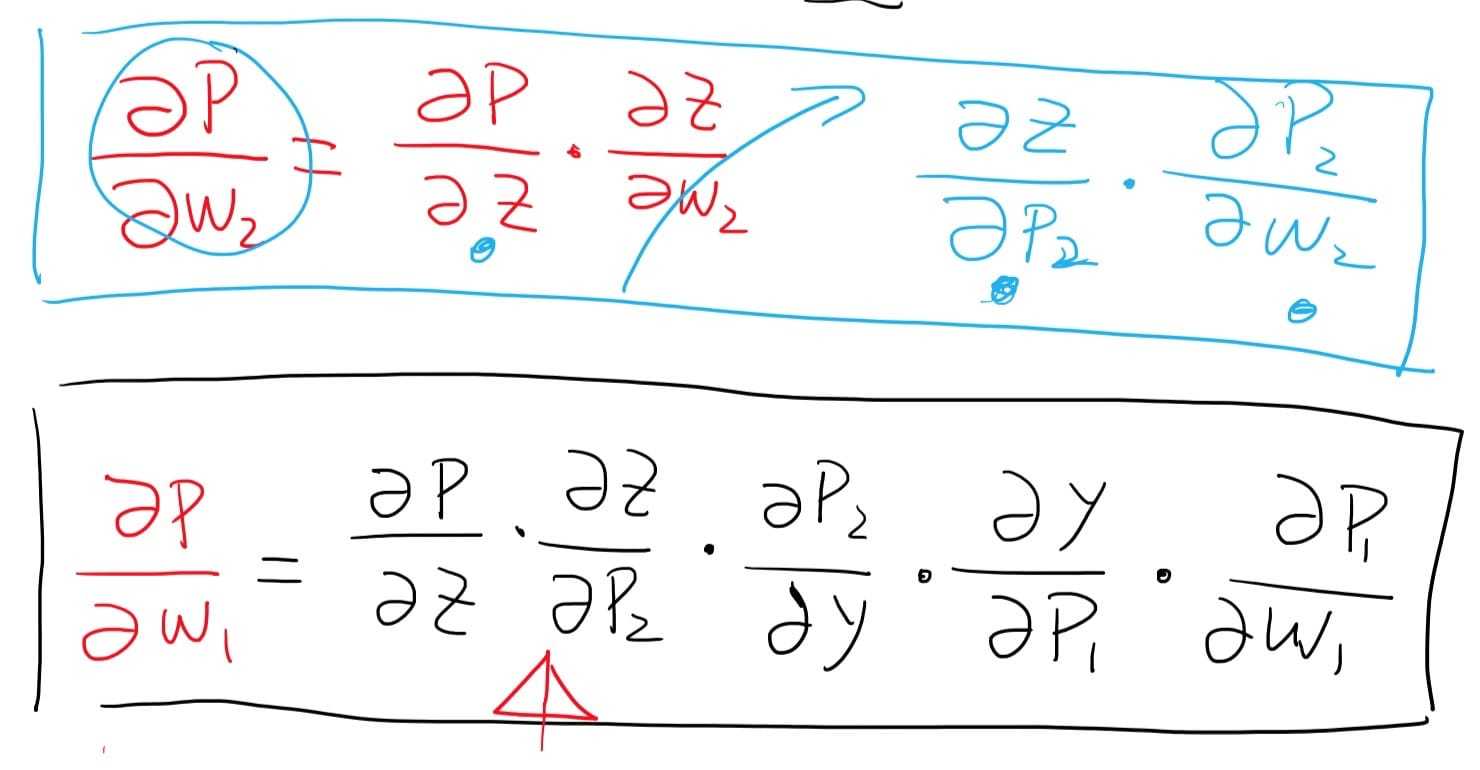 ∂P/∂W₂ = ∂P/∂Z · ∂Z/∂W₂ ∂Z/∂P₂ · ∂P₂/∂W₂
∂P/∂W₁ = ∂P/∂Z · ∂Z/∂P₂ · ∂P₂/∂y · ∂y/∂P₁ · ∂P₁/∂W₁